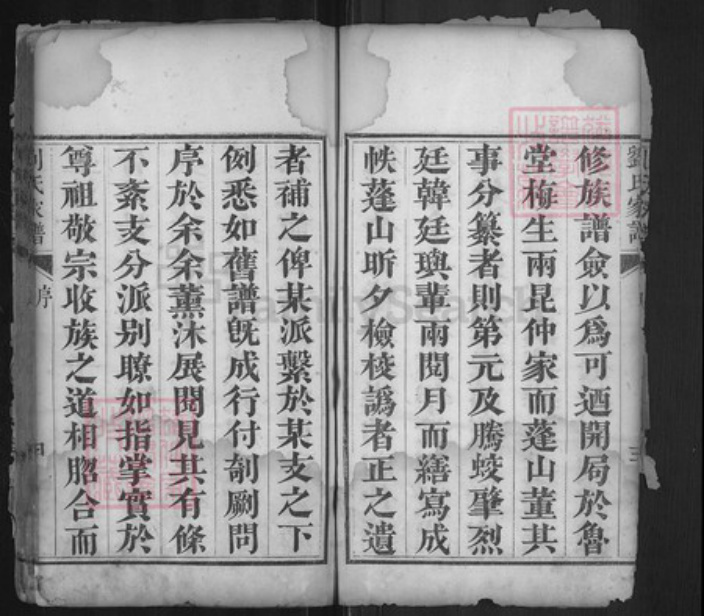 劉氏家譜
三
修族譜僉以爲可迺開局於魯
堂梅生兩昆仲家而蓬山董其
事分纂者則第元及騰蛟肇烈
廷韓廷璵輩兩閱月而繕寫成
帙蓬山昕夕檢校譌者正之遺
者補之俾某派繫於某支之下
例悉如舊譜旣成行付剞劂問
序於余余薰沐展閱見其有條
不紊支分派別瞭如指掌實於
尊祖敬宗收族之道相脗合而
劉氏家譜
序
四
FamilySearch